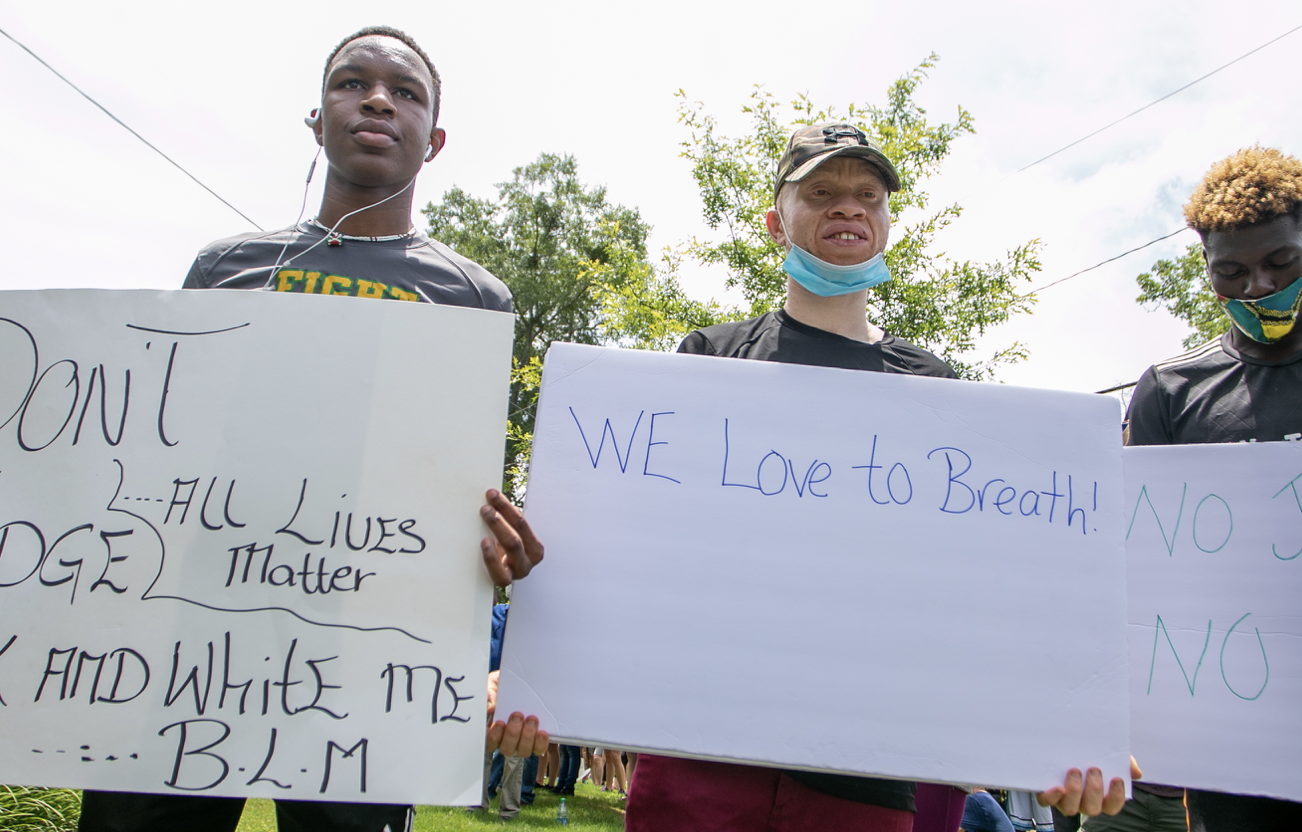 FIGHT
DON'T
ALL LIVES
Matter
DGE
AND White ME
B.L.M
WE Love to Breath!
NO J
NO